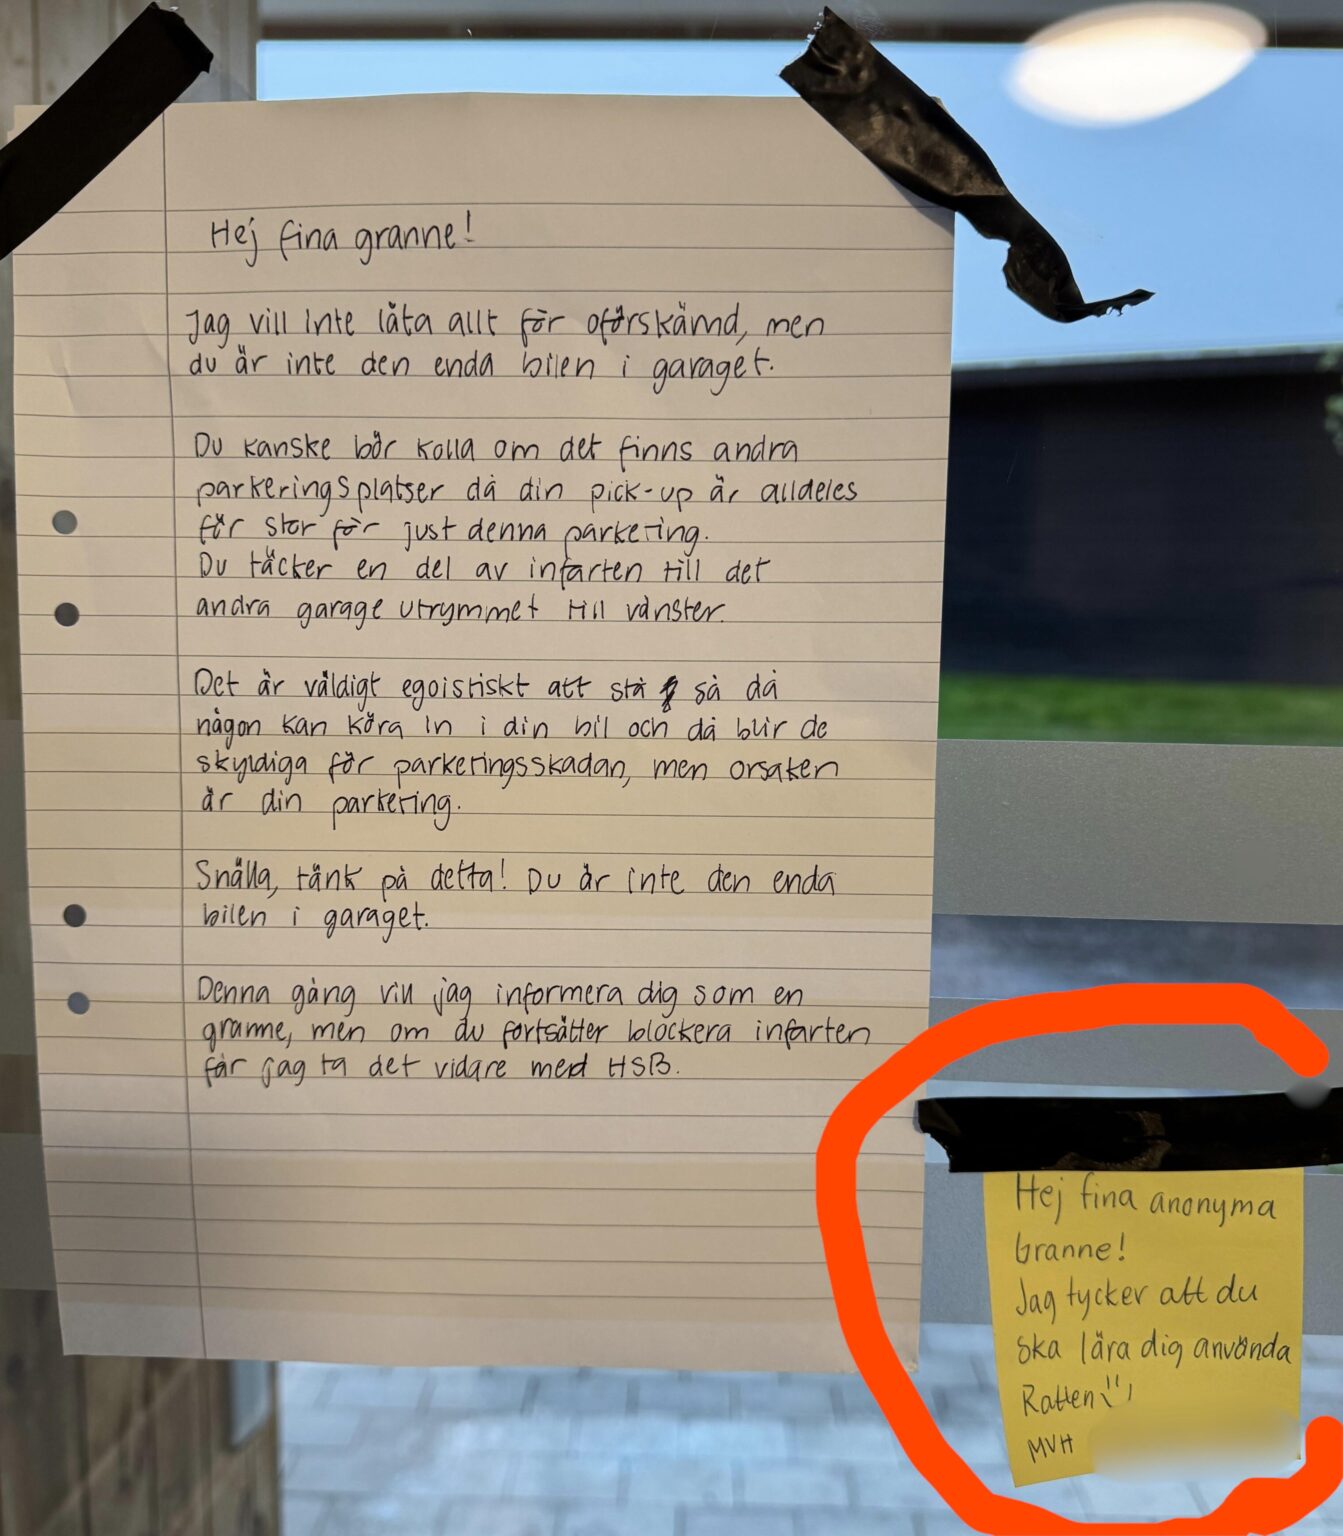 Hej fina granne!
Jag vill inte låta allt för oförskämd, men
du är inte den enda bilen i garaget.
Du kanske bör kolla om det finns andra
parkeringsplatser då din pick-up är alldeles
för stor för just denna parkering.
Du täcker en del av infarten till det
andra garage utrymmet till vänster.
Det är väldigt egoistiskt att stå så då
någon kan köra in i din bil och då blir de
skyldiga för parkeringsskadan, men orsaken
är din parkering.
Snälla, tänk på detta! Du är inte den enda
bilen i garaget.
Denna gång vill jag informera dig som en
granne, men om du fortsätter blockera infarten
får jag ta det vidare med HSB.
Hej fina anonyma
Granne!
Jag tycker att du
ska lära dig använda
Ratten
MVH